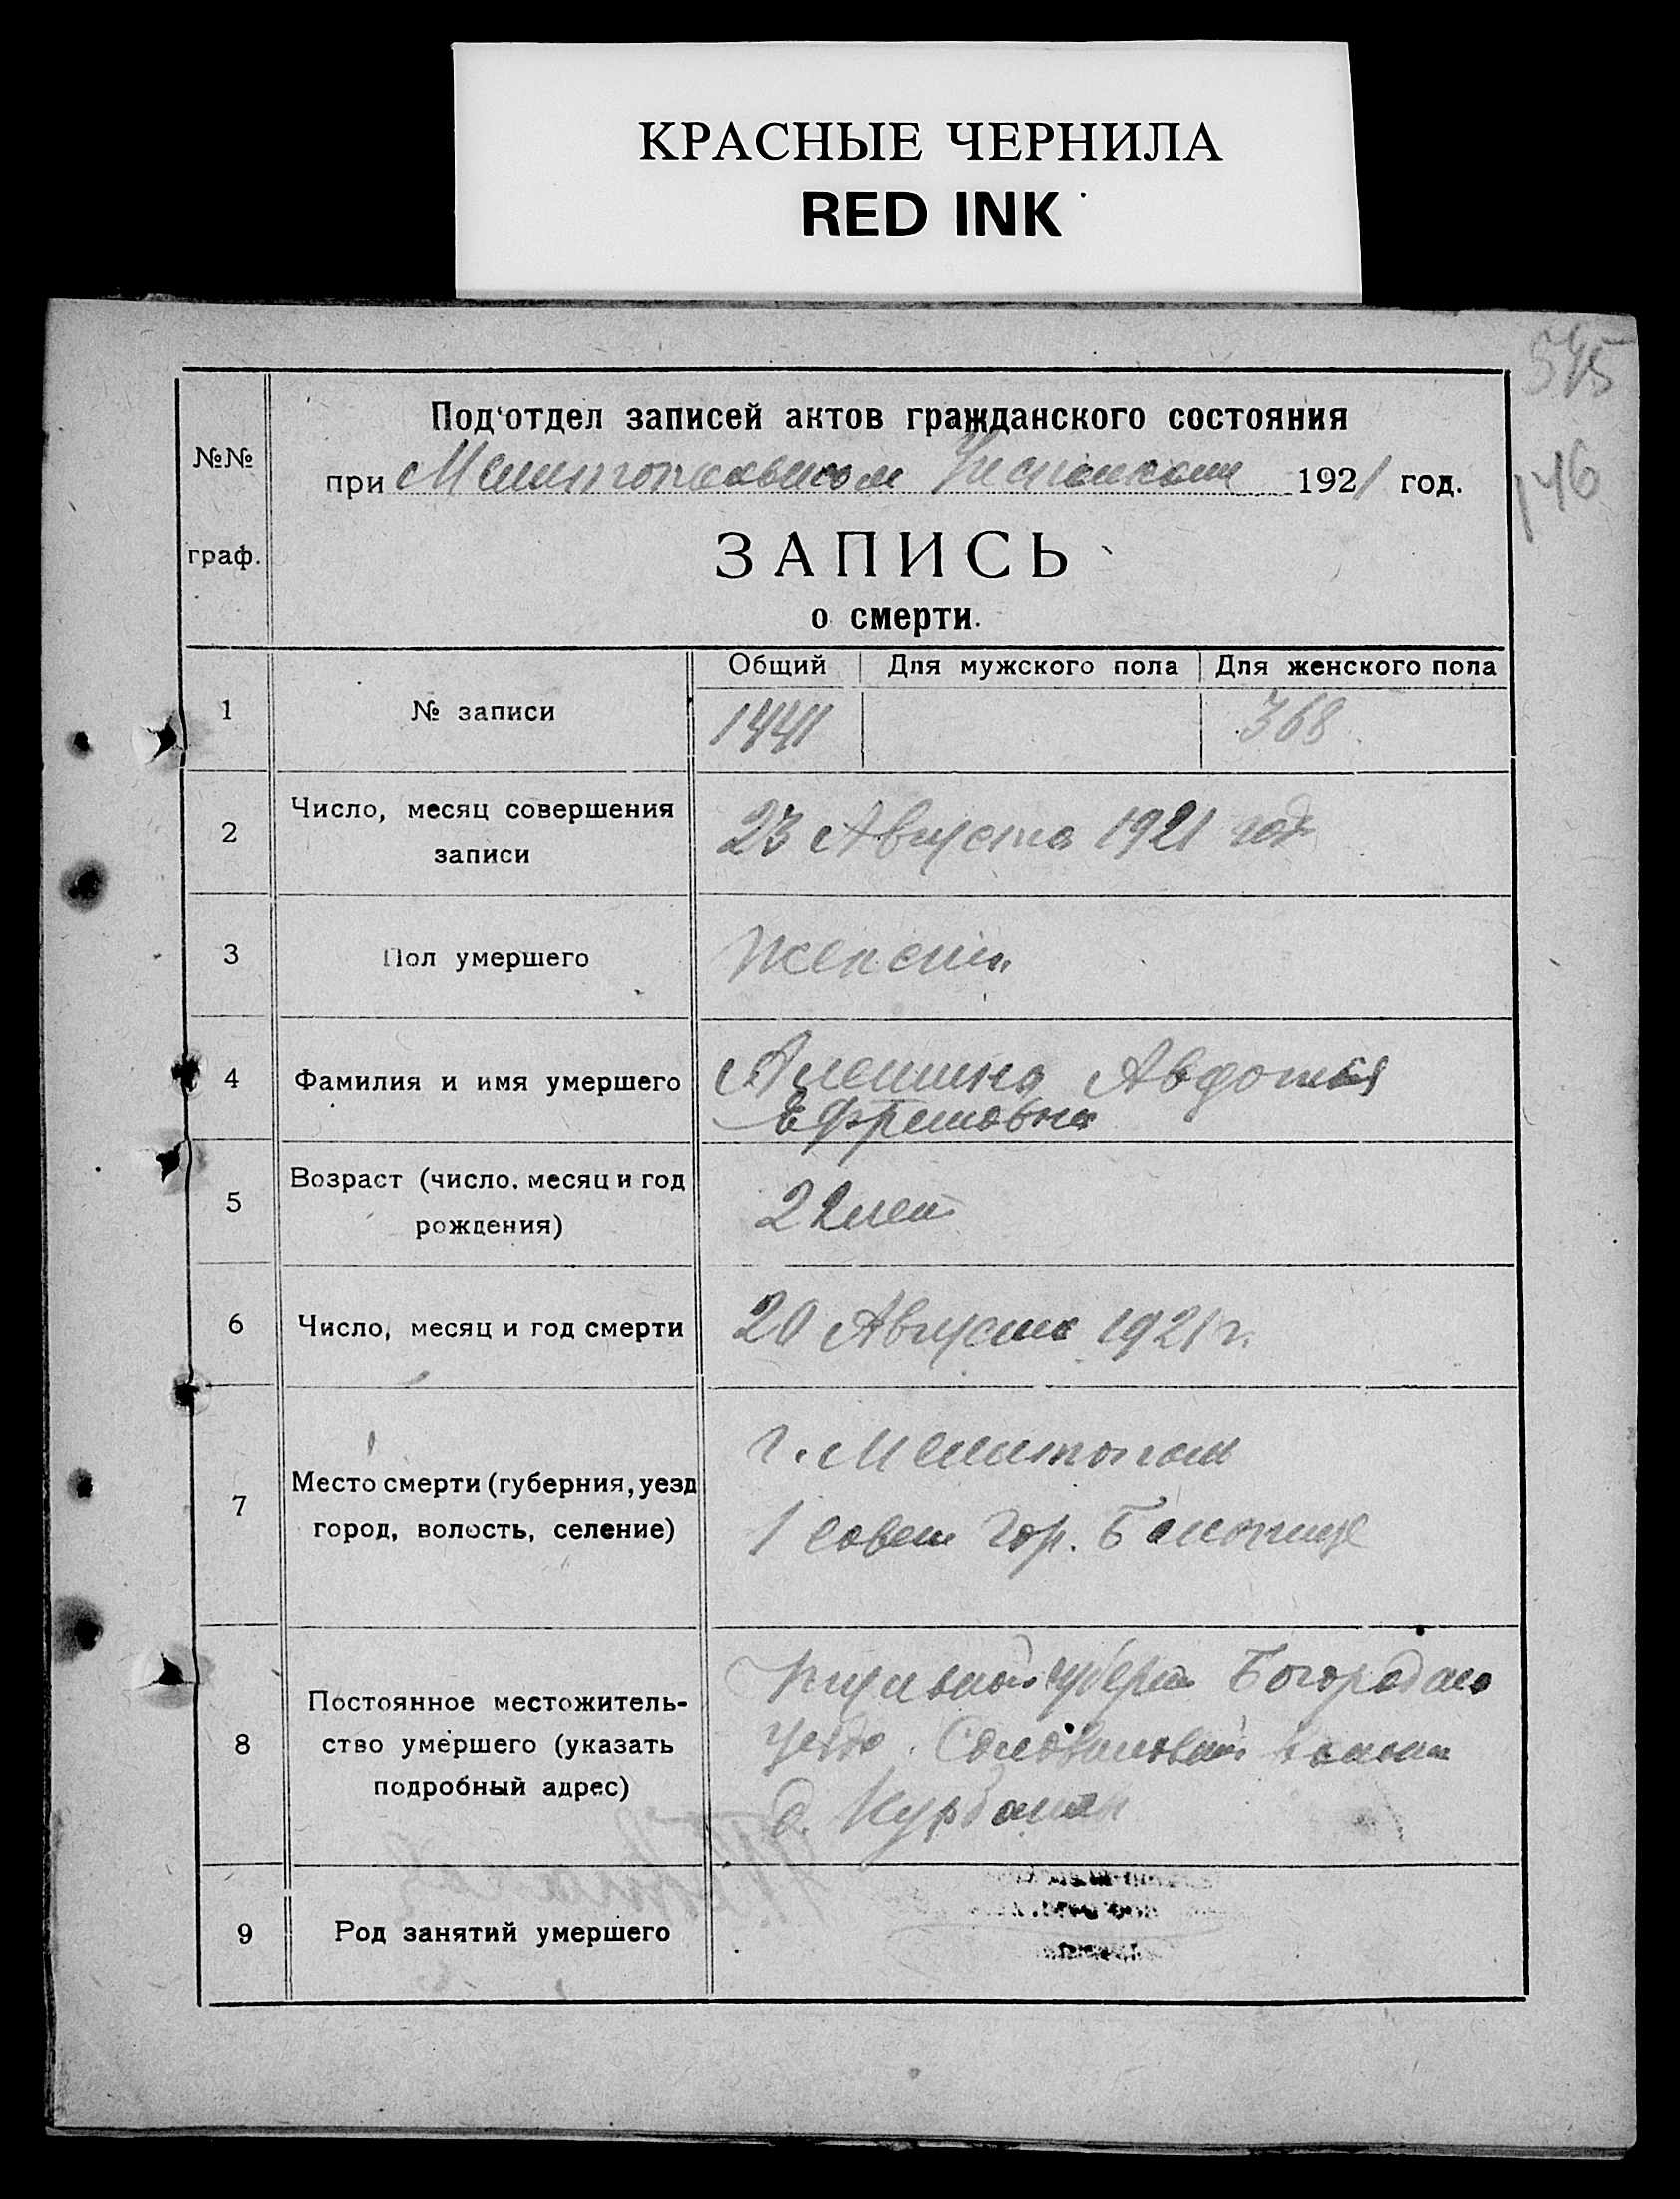 КРАСНЫЕ ЧЕРНИЛА
RED INK
545
146
№№
граф.
Под'отдел записей актов гражданского состояния
при Мелитопольском 1921 год.
ЗАПИСЬ
о смерти.
Общий Для мужского пола Для женского пола
1 № записи 1441 368
2 Число, месяц совершения записи
23 Августа 1921 год
3 Пол умершего
Женский
4 Фамилия и имя умершего
Алешина Авдотья
Ефремовна
5 Возраст (число, месяц и год рождения)
22 лет
6 Число, месяц и год смерти
20 Августа 1921 г.
7 Место смерти (губерния, уезд город, волость, селение)
г. Мелитополь
1 Совет гор. Больнице
8 Постоянное местожительство умершего (указать подробный адрес)
губерн
уезда
д.
9 Род занятий умершего